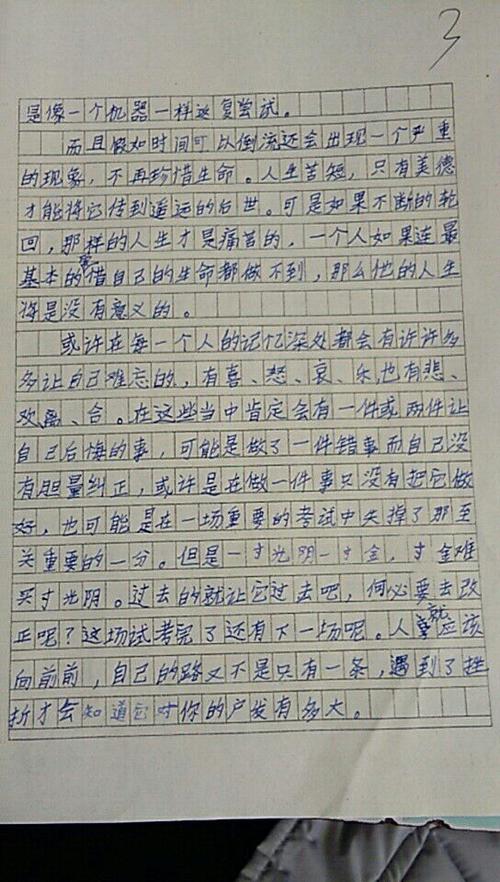 3
是像一个机器一样返复尝试。
而且假如时间可以倒流还会出现一个严重
的现象，不再珍惜生命。人生苦短，只有美德
才能将它传到遥远的后世。可是如果不断的轮
回，那样的人生才是痛苦的，一个人如果连最
基本的爱惜自己的生命都做不到，那么他的人生
将是没有意义的。
或许在每一个人的记忆深处都会有许许多
多让自己难忘的，有喜、怒、哀、乐，也有悲、
欢离、合。在这些当中肯定会有一件或两件让
自己后悔的事，可能是做了一件错事而自己没
有胆量纠正，或许是在做一件事只没有把它做
好，也可能是在一场重要的考试中失掉了那至
关重要的一分。但是一寸光阴一寸金，寸金难
买寸光阴。过去的就让它过去吧，何必要去改
正呢？这场试考完了还有下一场呢。人就应该
向前前，自己的路又不是只有一条，遇到了挫
折才会知道它对你的启发有多大。